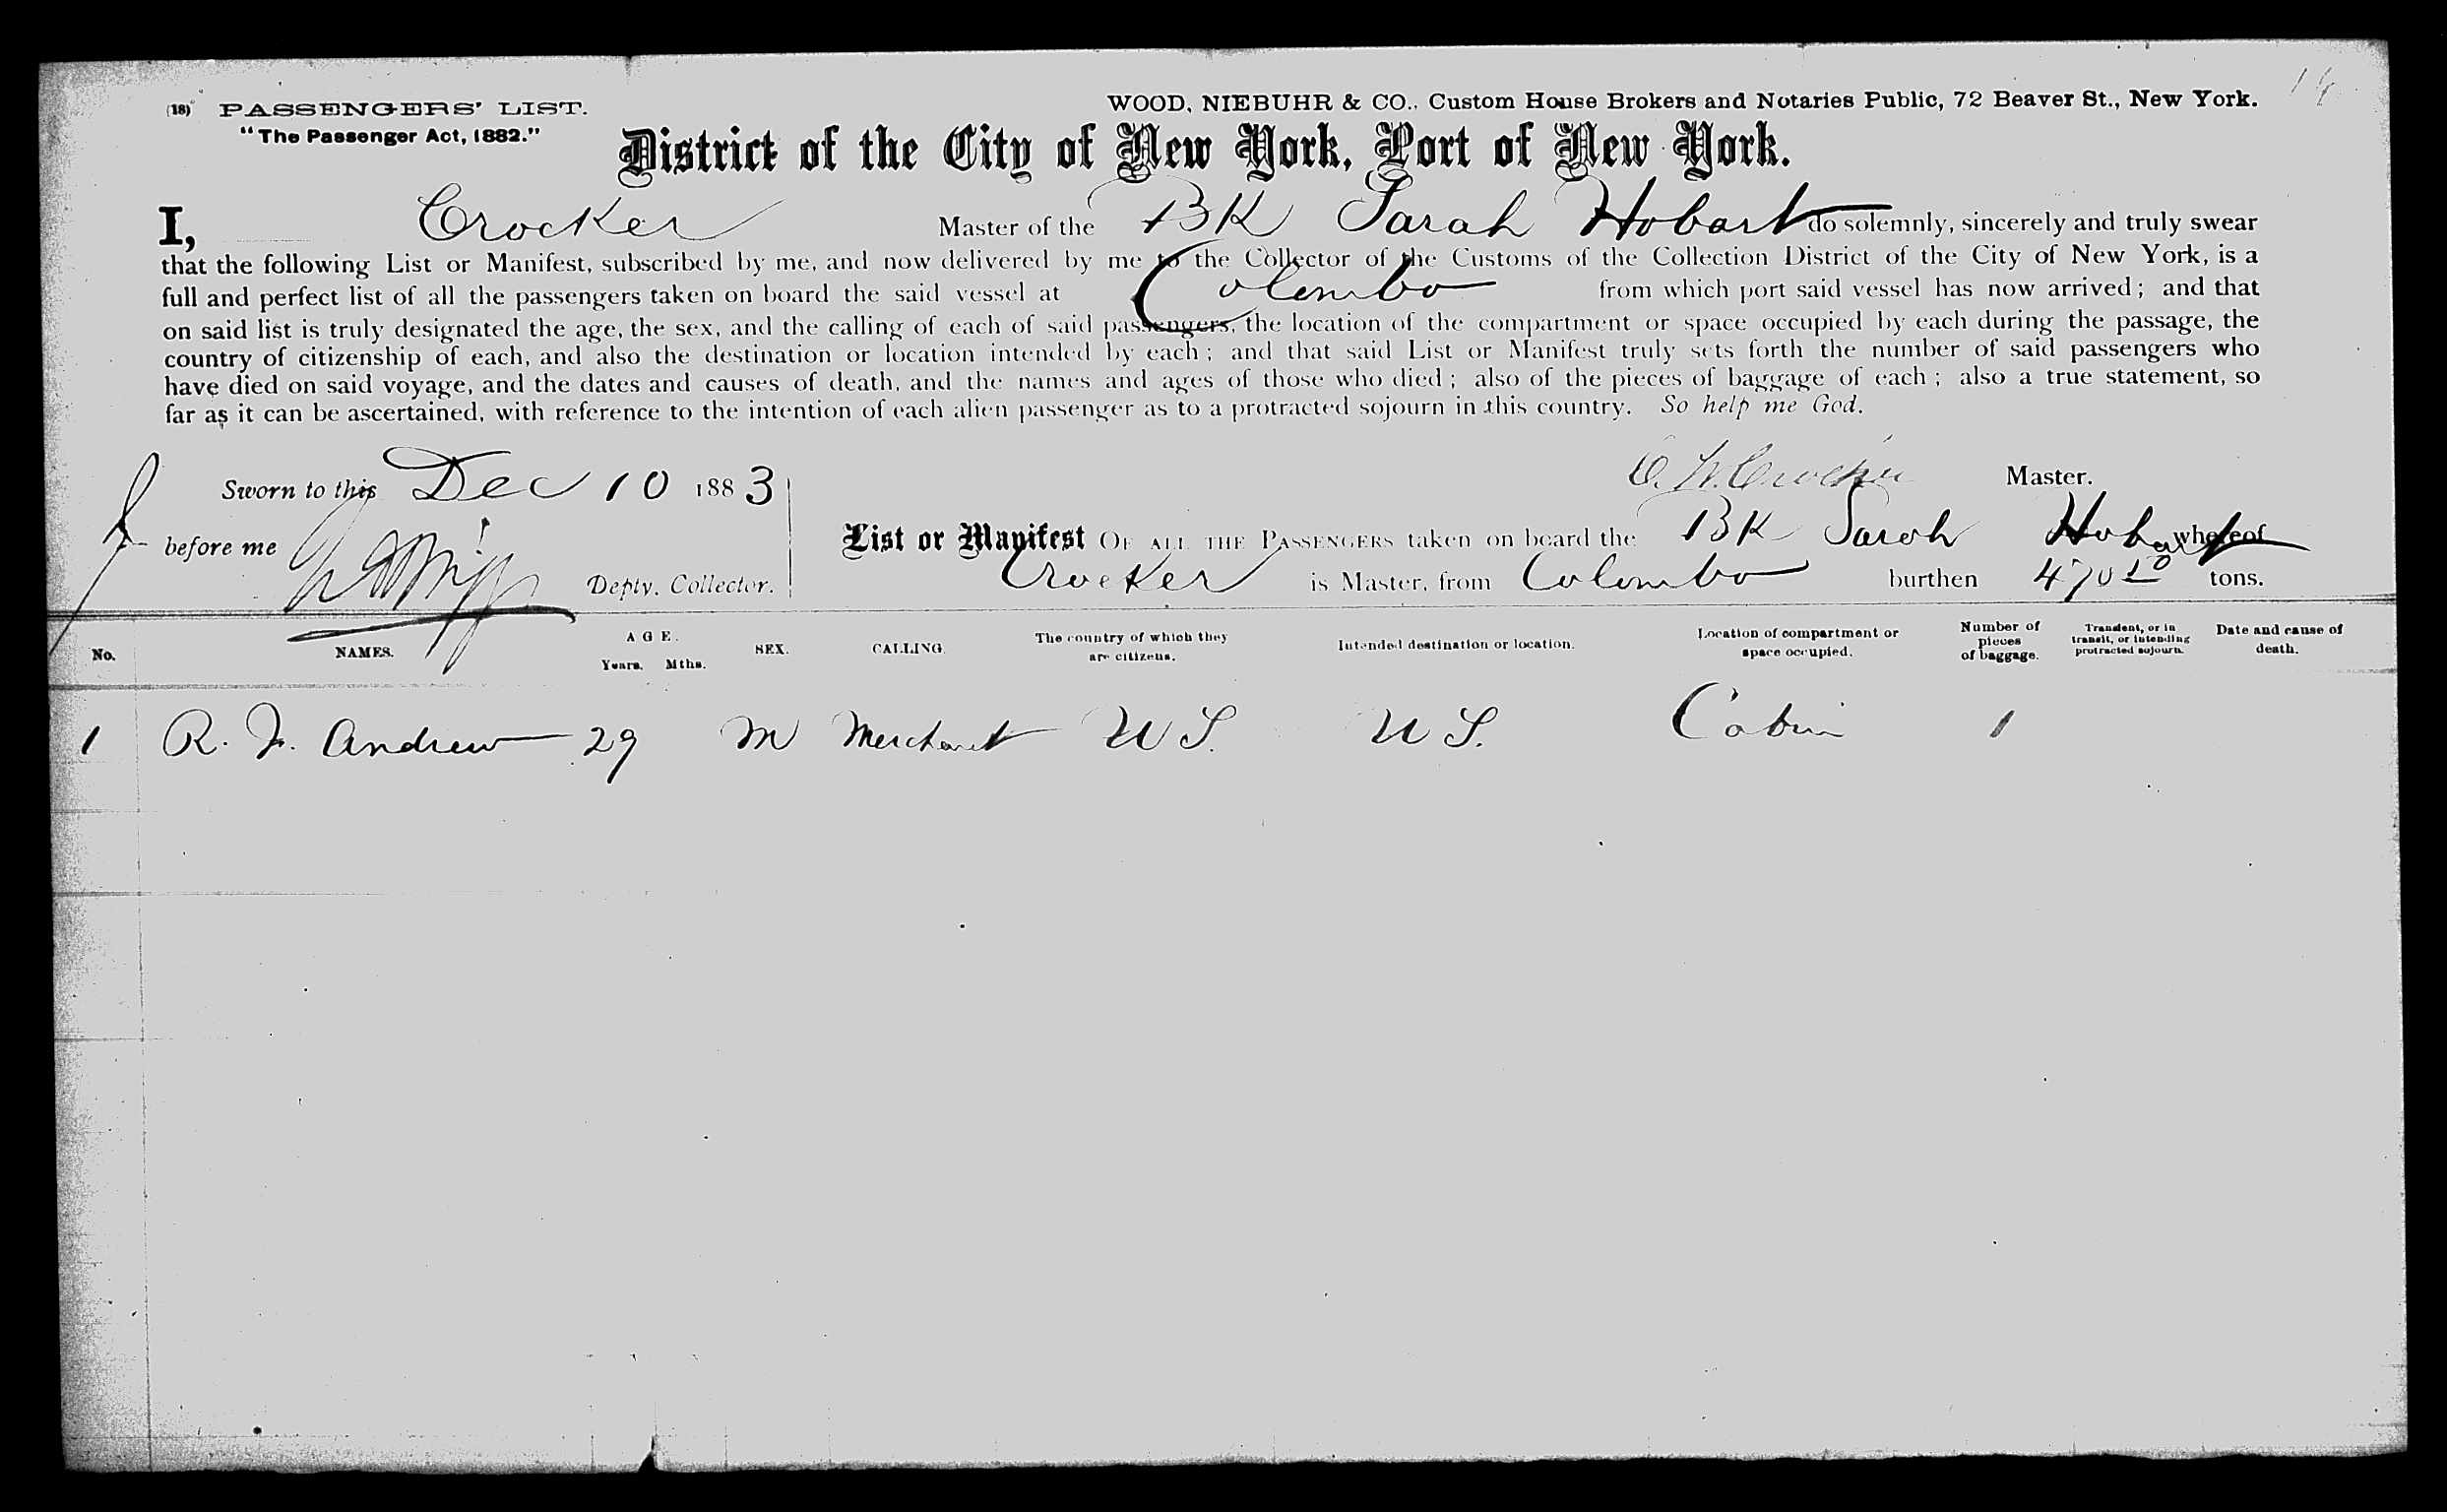 (18) PASSENGERS' LIST. WOOD, NIEBUHR & CO., Custom House Brokers and Notaries Public, 72 Beaver St., New York.
"The Passenger Act, 1882."
District of the City of New York, Port of New York.
I, Crocker Master of the BK Sarah Hobart do solemnly, sincerely and truly swear
that the following List or Manifest, subscribed by me, and now delivered by me to the Collector of the Customs of the Collection District of the City of New York, is a
full and perfect list of all the passengers taken on board the said vessel at Colombo from which port said vessel has now arrived; and that
on said list is truly designated the age, the sex, and the calling of each of said passengers, the location of the compartment or space occupied by each during the passage, the
country of citizenship of each, and also the destination or location intended by each; and that said List or Manifest truly sets forth the number of said passengers who
have died on said voyage, and the dates and causes of death, and the names and ages of those who died; also of the pieces of baggage of each; also a true statement, so
far as it can be ascertained, with reference to the intention of each alien passenger as to a protracted sojourn in this country. So help me God.
Sworn to this Dec 10 1883 Crocker Master.
before me Depty. Collector.
List or Manifest OF ALL THE PASSENGERS taken on board the BK Sarah Hobart whereof
Crocker is Master, from Colombo burthen 470 50 tons.
No. NAMES. AGE. Years. Mths. SEX. CALLING. The country of which they are citizens. Intended destination or location. Location of compartment or space occupied. Number of pieces of baggage. Transient, or in transit, or intending protracted sojourn. Date and cause of death.
1 R. F. Andrew 29 M Merchant U S. U S. Cabin 1